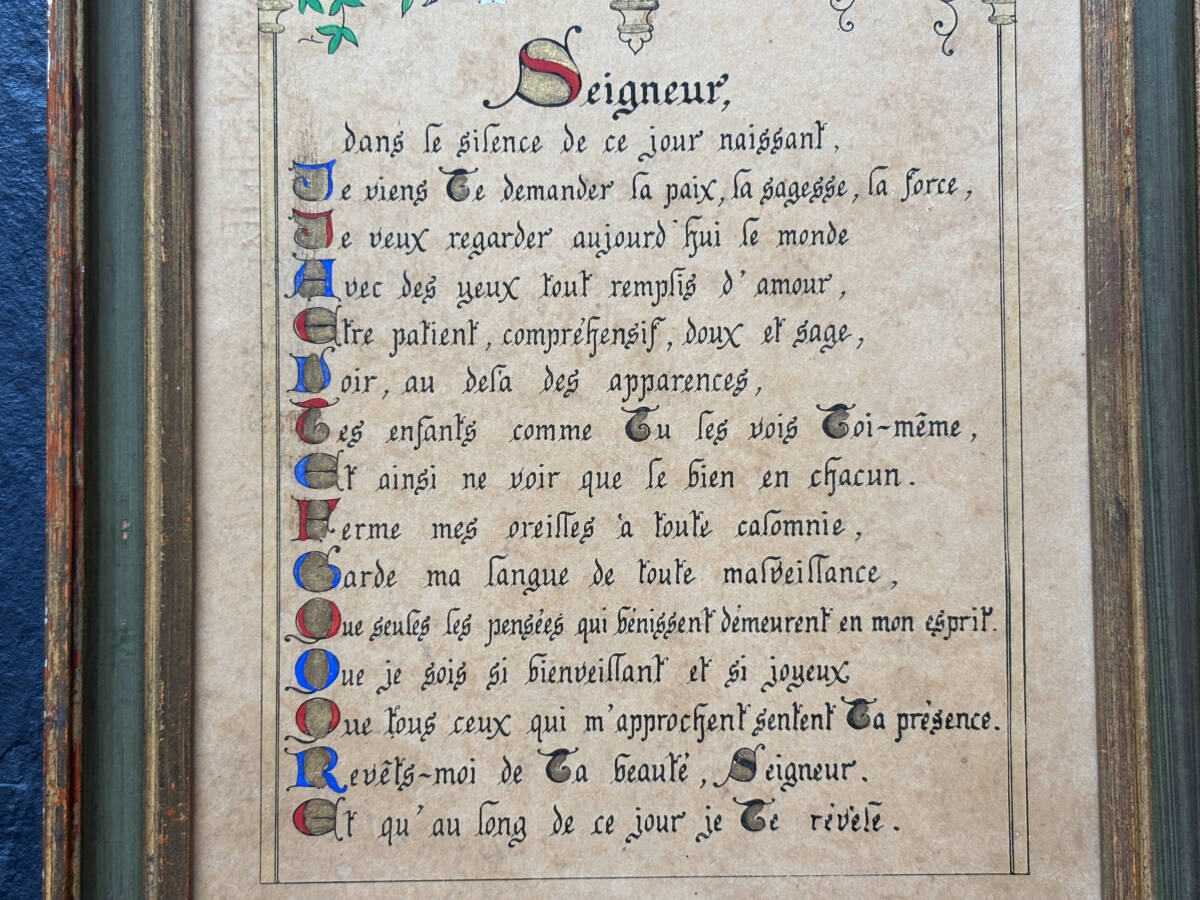 Seigneur,
dans le silence de ce jour naissant,
Je viens Te demander la paix, la sagesse, la force,
Je veux regarder aujourd'hui le monde
Avec des yeux tout remplis d'amour,
Etre patient, compréhensif, doux et sage,
Voir, au delà des apparences,
Tes enfants comme Tu les vois Toi-même,
Et ainsi ne voir que le bien en chacun.
Ferme mes oreilles à toute calomnie,
Garde ma langue de toute malveillance,
Que seules les pensées qui bénissent demeurent en mon esprit.
Que je sois si bienveillant et si joyeux
Que tous ceux qui m'approchent sentent Ta présence.
Revêts-moi de Ta beauté, Seigneur.
Et qu'au long de ce jour je Te révèle.